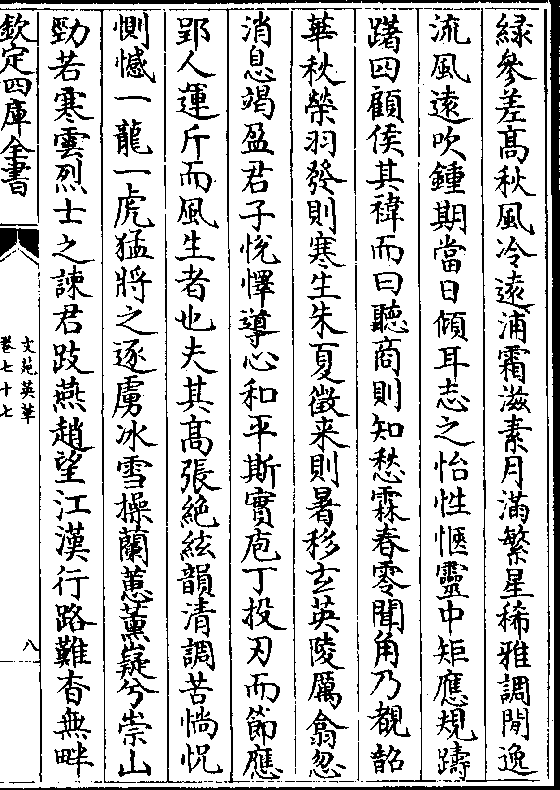 緑參差髙秋風冷遠浦霜滋素月滿繁星稀雅調閒逸
流風遠吹鍾期當日傾耳志之怡性惬靈中矩應規躊
躇四顧俟其褘而曰聽商則知愁霖春零聞角乃覩韶
華秋榮羽發則寒生朱夏徵来則暑移玄英陵厲翕忽
消息竭盈君子恱懌導心和平斯實庖丁投刃而節應
郢人運斤而風生者也夫其髙張絶絃韻清調苦惝怳
惻憾一龍一虎猛將之逐虜冰雪操蘭蕙薫嶷兮崇山
勁若寒雲烈士之諫君跂燕趙望江漢行路難杳無畔
欽定四庫全書
文苑英華
卷七十七
八